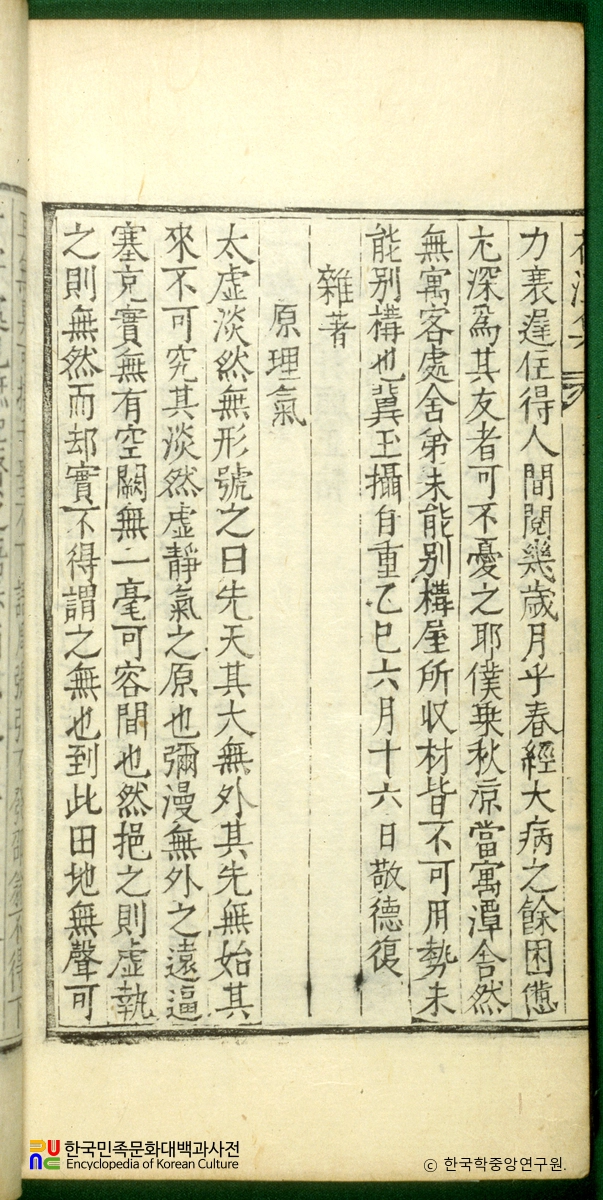 力衰遑住得人間閱幾歲月乎春經大病之餘困憊
尤深爲其友者可不憂之耶僕乗秋凉當寓潭舍然
無寓客處舍弟未能別構屋所収材皆不可用勢未
能別構也冀玉攝自重乙巳六月十六日敬德復
雜著
原理氣
太虛淡然無形號之曰先天其大無外其先無始其
來不可究其淡然虛靜氣之原也彌漫無外之遠逼
塞充實無有空闕無一毫可容間也然挹之則虛執
之則無然而却實不得謂之無也到此田地無聲可
한국민족문화대백과사전
Encyclopedia of Korean Culture
ⓒ 한국학중앙연구원.